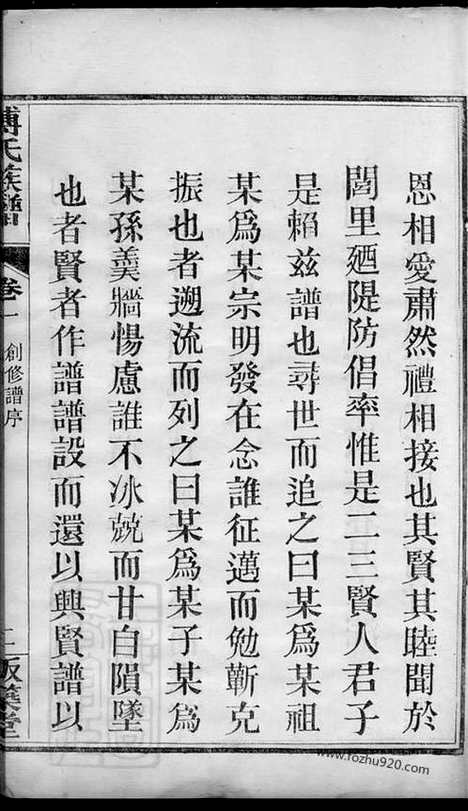 恩相愛肅然禮相接也其賢其睦聞於
閭里廼隄防倡率惟是二三賢人君子
是賴茲譜也尋世而追之曰某爲某祖
某爲某宗明發在念誰征邁而勉蘄克
振也者遡流而列之曰某爲某子某爲
某孫羹牆惕慮誰不冰兢而甘白隕墜
也者賢者作譜譜設而還以興賢譜以
氏族譜
卷一
創修譜序
二
www.fozhu920.com